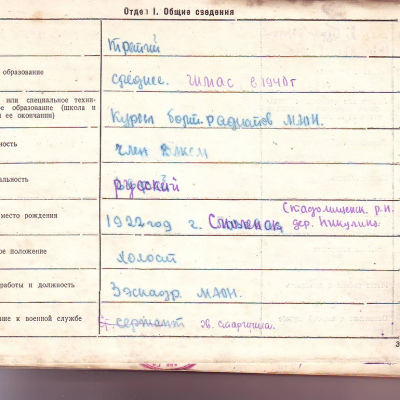 Отдел I. Общие сведения
Третий
образование
среднее. 9 клас в 1940г
или специальное техни-
ое образование (школа и
ее окончания)
Курсы борт. радистов МАОН.
ность
член ВЛКСМ
альность
русский
место рождения
1922 год г. Смоленск
дер. Никулино
ое положение
холост
работы и должность
Эскадр. МАОН.
ние к военной службе
сержант гв. старшина.
3